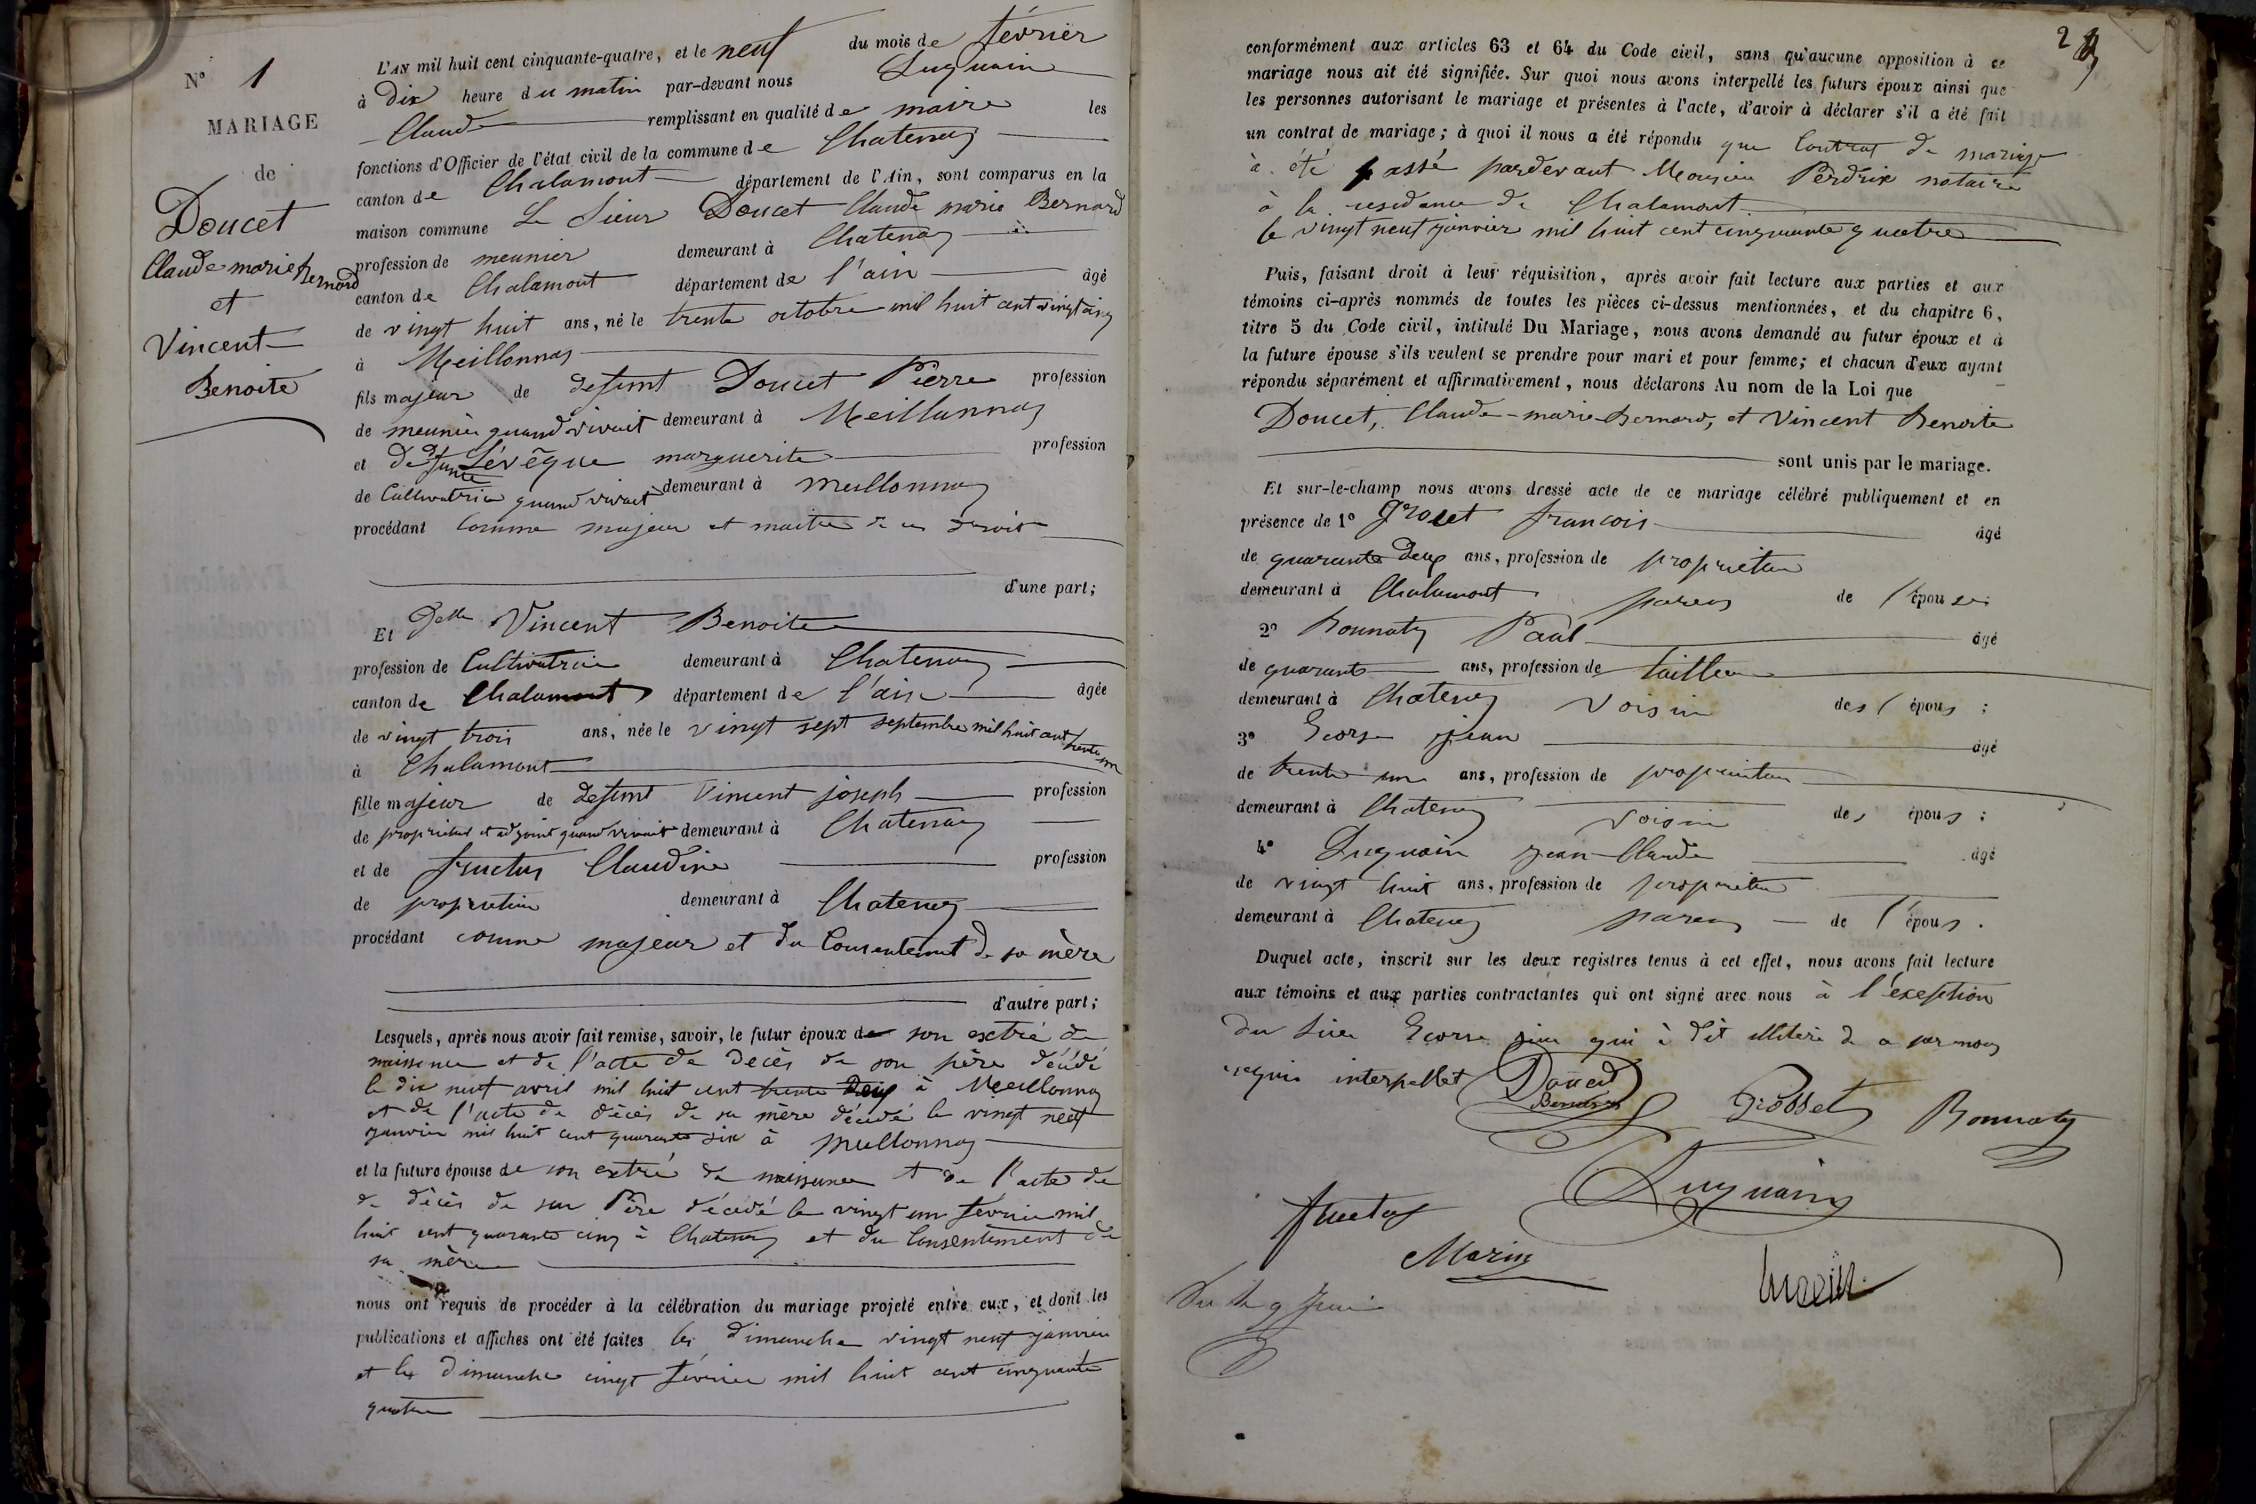 N° 1
MARIAGE
de
Doucet
Claude marie Bernard
et
Vincent
Benoite
L'AN mil huit cent cinquante-quatre, et le neuf du mois de février
à Dix heure du matin par-devant nous Luquain
Claude remplissant en qualité de maire les
fonctions d'Officier de l'état civil de la commune de Chatenay
canton de Chalamont département de l'Ain, sont comparus en la
maison commune Le Sieur Doucet Claude marie Bernard
profession de meunier demeurant à Chatenay
canton de Chalamont département de l'ain âgé
de vingt huit ans, né le trente octobre mil huit cent vingt cinq
à Meillonnas
fils majeur de defunt Doucet Pierre profession
de meunier quand vivait demeurant à Meillonnas
et De defunte Lévêque marguerite profession
de Cultivatrice quand vivait demeurant à meillonnas
procédant comme majeur et maitre de ses droits
d'une part;
Et Delle Vincent Benoite
profession de Cultivatrice demeurant à Chatenay
canton de Chalamont département de l'ain âgée
de vingt trois ans, née le vingt sept septembre mil huit cent trente
à Chalamont
fille majeur de defunt Vincent joseph profession
de propriétaire et adjoint quand vivait demeurant à Chatenay
et de fructus Claudine profession
de propriétaire demeurant à Chatenay
procédant comme majeur et du Consentement de sa mère
d'autre part;
Lesquels, après nous avoir fait remise, savoir, le futur époux de son extrié de
naissance et de l'acte de Decès de son père décédé
le dix neuf avril mil huit cent trente Deux à Meillonnas
et de l'acte de décès de sa mère décédé le vingt neuf
janvier mil huit cent quarante six à meillonnas
et la future épouse de son extrié de naissance et de l'acte de
de décès de son Père décédé le vingt un février mil
huit cent quarante cinq à Chatenay et du Consentement de
sa mère
nous ont requis de procéder à la célébration du mariage projeté entre eux, et dont les
publications et affiches ont été faites les dimanche vingt neuf janvier
et les dimanche cinq février mil huit cent cinquante
quatre
2
conformément aux articles 63 et 64 du Code civil, sans qu'aucune opposition à ce
mariage nous ait été signifiée. Sur quoi nous avons interpellé les futurs époux ainsi que
les personnes autorisant le mariage et présentes à l'acte, d'avoir à déclarer s'il a été fait
un contrat de mariage; à quoi il nous a été répondu que Contrat de mariage
à été passé pardevant Monsieur Perdrix notaire
à la residance de Chalamont
le vingt neuf janvier mil huit cent cinquante quatre
Puis, faisant droit à leur réquisition, après avoir fait lecture aux parties et aux
témoins ci-après nommés de toutes les pièces ci-dessus mentionnées, et du chapitre 6,
titre 5 du Code civil, intitulé Du Mariage, nous avons demandé au futur époux et à
la future épouse s'ils veulent se prendre pour mari et pour femme; et chacun d'eux ayant
répondu séparément et affirmativement, nous déclarons Au nom de la Loi que
Doucet, Claude-marie-Bernard, et Vincent Benoite
sont unis par le mariage.
Et sur-le-champ nous avons dressé acte de ce mariage célébré publiquement et en
présence de 1° Groset francois âgé
de quarante Deux ans, profession de propriétaire
demeurant à Chalamont parens de l'épouse;
2° Bonnaty Paul âgé
de quarante ans, profession de tailleur
demeurant à Chatenay Voisin des époux;
3° Ecorse jean âgé
de trente un ans, profession de propriétaire
demeurant à Chatenay Voisin des époux;
4° Luquain jean-Claude âgé
de vingt huit ans, profession de propriétaire
demeurant à Chatenay parens de l'époux.
Duquel acte, inscrit sur les doux registres tenus à cet effet, nous avons fait lecture
aux témoins et aux parties contractantes qui ont signé avec nous à l'exeption
du sieur Ecorse jean qui à dit illitéré de ce par nous
requis interpellet Doucet
Bernard Grosset Bonnaty
Luquain
fructus
Morin